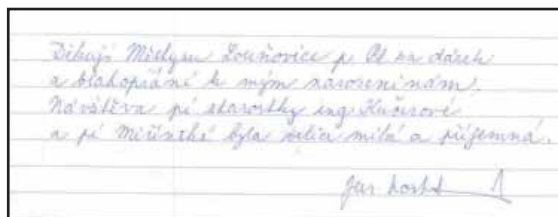 Děkuji Městysu Louňovice p. Bl. za dárek
a blahopřání k mým narozeninám.
Návštěva pí starostky ing Kučerové
a pí Miřínské byla velice milá a příjemná.
Jan